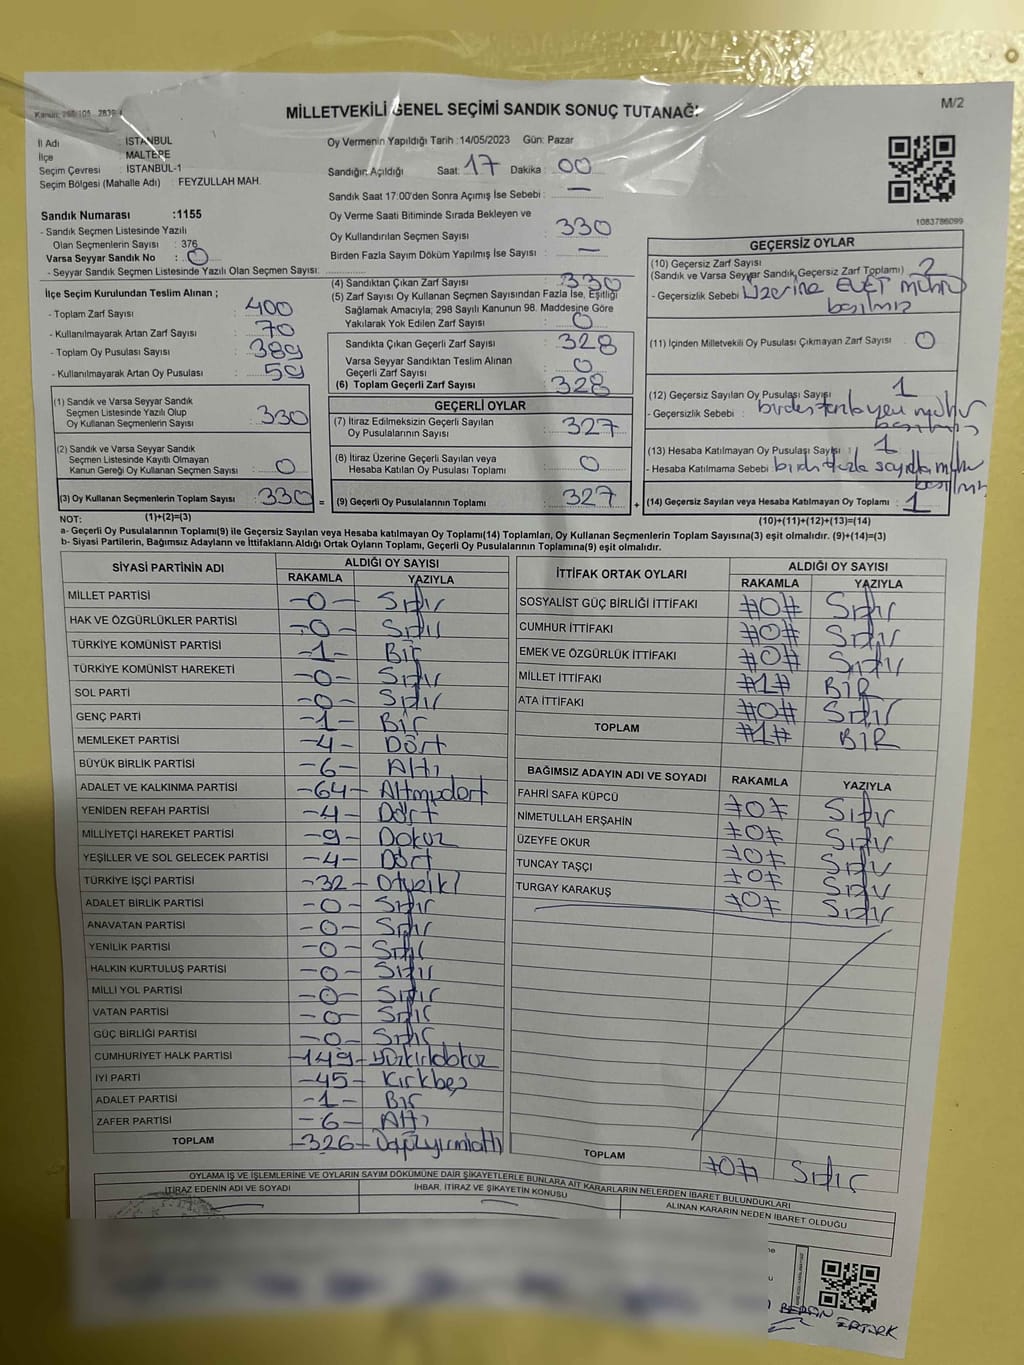 Kanun: 298/105 2839/
M/2
MİLLETVEKİLİ GENEL SEÇİMİ SANDIK SONUÇ TUTANAĞI
İl Adı : İSTANBUL
İlçe : MALTEPE
Seçim Çevresi : İSTANBUL-1
Seçim Bölgesi (Mahalle Adı) : FEYZULLAH MAH.
Sandık Numarası :1155
- Sandık Seçmen Listesinde Yazılı
Olan Seçmenlerin Sayısı : 376
Varsa Seyyar Sandık No : 0
- Seyyar Sandık Seçmen Listesinde Yazılı Olan Seçmen Sayısı:
İlçe Seçim Kurulundan Teslim Alınan ;
- Toplam Zarf Sayısı : 400
- Kullanılmayarak Artan Zarf Sayısı : 70
- Toplam Oy Pusulası Sayısı : 389
- Kullanılmayarak Artan Oy Pusulası : 59
(1) Sandık ve Varsa Seyyar Sandık
Seçmen Listesinde Yazılı Olup
Oy Kullanan Seçmenlerin Sayısı : 330
(2) Sandık ve Varsa Seyyar Sandık
Seçmen Listesinde Kayıtlı Olmayan
Kanun Gereği Oy Kullanan Seçmen Sayısı : 0
(3) Oy Kullanan Seçmenlerin Toplam Sayısı : 330 =
(1)+(2)=(3)
Oy Vermenin Yapıldığı Tarih :14/05/2023 Gün: Pazar
Sandığın Açıldığı Saat: 17 Dakika : 00
Sandık Saat 17:00'den Sonra Açımış İse Sebebi : —
Oy Verme Saati Bitiminde Sırada Bekleyen ve
Oy Kullandırılan Seçmen Sayısı : 330
Birden Fazla Sayım Döküm Yapılmış İse Sayısı : —
(4) Sandıktan Çıkan Zarf Sayısı : 330
(5) Zarf Sayısı Oy Kullanan Seçmen Sayısından Fazla İse, Eşitliği
Sağlamak Amacıyla; 298 Sayılı Kanunun 98. Maddesine Göre
Yakılarak Yok Edilen Zarf Sayısı : 0
Sandıkta Çıkan Geçerli Zarf Sayısı : 328
Varsa Seyyar Sandıktan Teslim Alınan
Geçerli Zarf Sayısı : 0
(6) Toplam Geçerli Zarf Sayısı : 328
GEÇERLİ OYLAR
(7) İtiraz Edilmeksizin Geçerli Sayılan
Oy Pusulalarının Sayısı : 327
(8) İtiraz Üzerine Geçerli Sayılan veya
Hesaba Katılan Oy Pusulası Toplamı : 0
(9) Geçerli Oy Pusulalarının Toplamı : 327 +
1083786099
GEÇERSİZ OYLAR
(10) Geçersiz Zarf Sayısı
(Sandık ve Varsa Seyyar Sandık Geçersiz Zarf Toplamı) : 2
- Geçersizlik Sebebi : Üzerine EVET mührü
basılmış
(11) İçinden Milletvekili Oy Pusulası Çıkmayan Zarf Sayısı : 0
(12) Geçersiz Sayılan Oy Pusulası Sayısı : 1
- Geçersizlik Sebebi : birden fazla yere mühür
basılmış
(13) Hesaba Katılmayan Oy Pusulası Sayısı : 1
- Hesaba Katılmama Sebebi birden fazla sayıda mühür
basılmış
(14) Geçersiz Sayılan veya Hesaba Katılmayan Oy Toplamı : 1
(10)+(11)+(12)+(13)=(14)
NOT:
a- Geçerli Oy Pusulalarının Toplamı(9) ile Geçersiz Sayılan veya Hesaba katılmayan Oy Toplamı(14) Toplamları, Oy Kullanan Seçmenlerin Toplam Sayısına(3) eşit olmalıdır. (9)+(14)=(3)
b- Siyasi Partilerin, Bağımsız Adayların ve İttifakların Aldığı Ortak Oyların Toplamı, Geçerli Oy Pusulalarının Toplamına(9) eşit olmalıdır.
SİYASİ PARTİNİN ADI ALDIĞI OY SAYISI
RAKAMLA YAZIYLA
MİLLET PARTİSİ -0- Sıfır
HAK VE ÖZGÜRLÜKLER PARTİSİ -0- Sıfır
TÜRKİYE KOMÜNİST PARTİSİ -1- Bir
TÜRKİYE KOMÜNİST HAREKETİ -0- Sıfır
SOL PARTİ -0- Sıfır
GENÇ PARTİ -1- Bir
MEMLEKET PARTİSİ -4- Dört
BÜYÜK BİRLİK PARTİSİ -6- Altı
ADALET VE KALKINMA PARTİSİ -64- Altmışdört
YENİDEN REFAH PARTİSİ -4- Dört
MİLLİYETÇİ HAREKET PARTİSİ -9- Dokuz
YEŞİLLER VE SOL GELECEK PARTİSİ -4- Dört
TÜRKİYE İŞÇİ PARTİSİ -32- Otuziki
ADALET BİRLİK PARTİSİ -0- Sıfır
ANAVATAN PARTİSİ -0- Sıfır
YENİLİK PARTİSİ -0- Sıfır
HALKIN KURTULUŞ PARTİSİ -0- Sıfır
MİLLİ YOL PARTİSİ -0- Sıfır
VATAN PARTİSİ -0- Sıfır
GÜÇ BİRLİĞİ PARTİSİ -0- Sıfır
CUMHURİYET HALK PARTİSİ -149- Yüzkırkdokuz
İYİ PARTİ -45- Kırkbeş
ADALET PARTİSİ -1- Bir
ZAFER PARTİSİ -6- Altı
TOPLAM -326- Üçyüzyirmialtı
İTTİFAK ORTAK OYLARI ALDIĞI OY SAYISI
RAKAMLA YAZIYLA
SOSYALİST GÜÇ BİRLİĞİ İTTİFAKI #0# Sıfır
CUMHUR İTTİFAKI #0# Sıfır
EMEK VE ÖZGÜRLÜK İTTİFAKI #0# Sıfır
MİLLET İTTİFAKI #1# BİR
ATA İTTİFAKI #0# Sıfır
TOPLAM #1# BİR
BAĞIMSIZ ADAYIN ADI VE SOYADI RAKAMLA YAZIYLA
FAHRİ SAFA KÜPCÜ #0# Sıfır
NİMETULLAH ERŞAHİN #0# Sıfır
ÜZEYFE OKUR #0# Sıfır
TUNCAY TAŞÇI #0# Sıfır
TURGAY KARAKUŞ #0# Sıfır
TOPLAM #0# Sıfır
OYLAMA İŞ VE İŞLEMLERİNE VE OYLARIN SAYIM DÖKÜMÜNE DAİR ŞİKAYETLERLE BUNLARA AİT KARARLARIN NELERDEN İBARET BULUNDUKLARI
İTİRAZ EDENİN ADI VE SOYADI İHBAR, İTİRAZ VE ŞİKAYETİN KONUSU ALINAN KARARIN NEDEN İBARET OLDUĞU
BERFİN
ERTÜRK